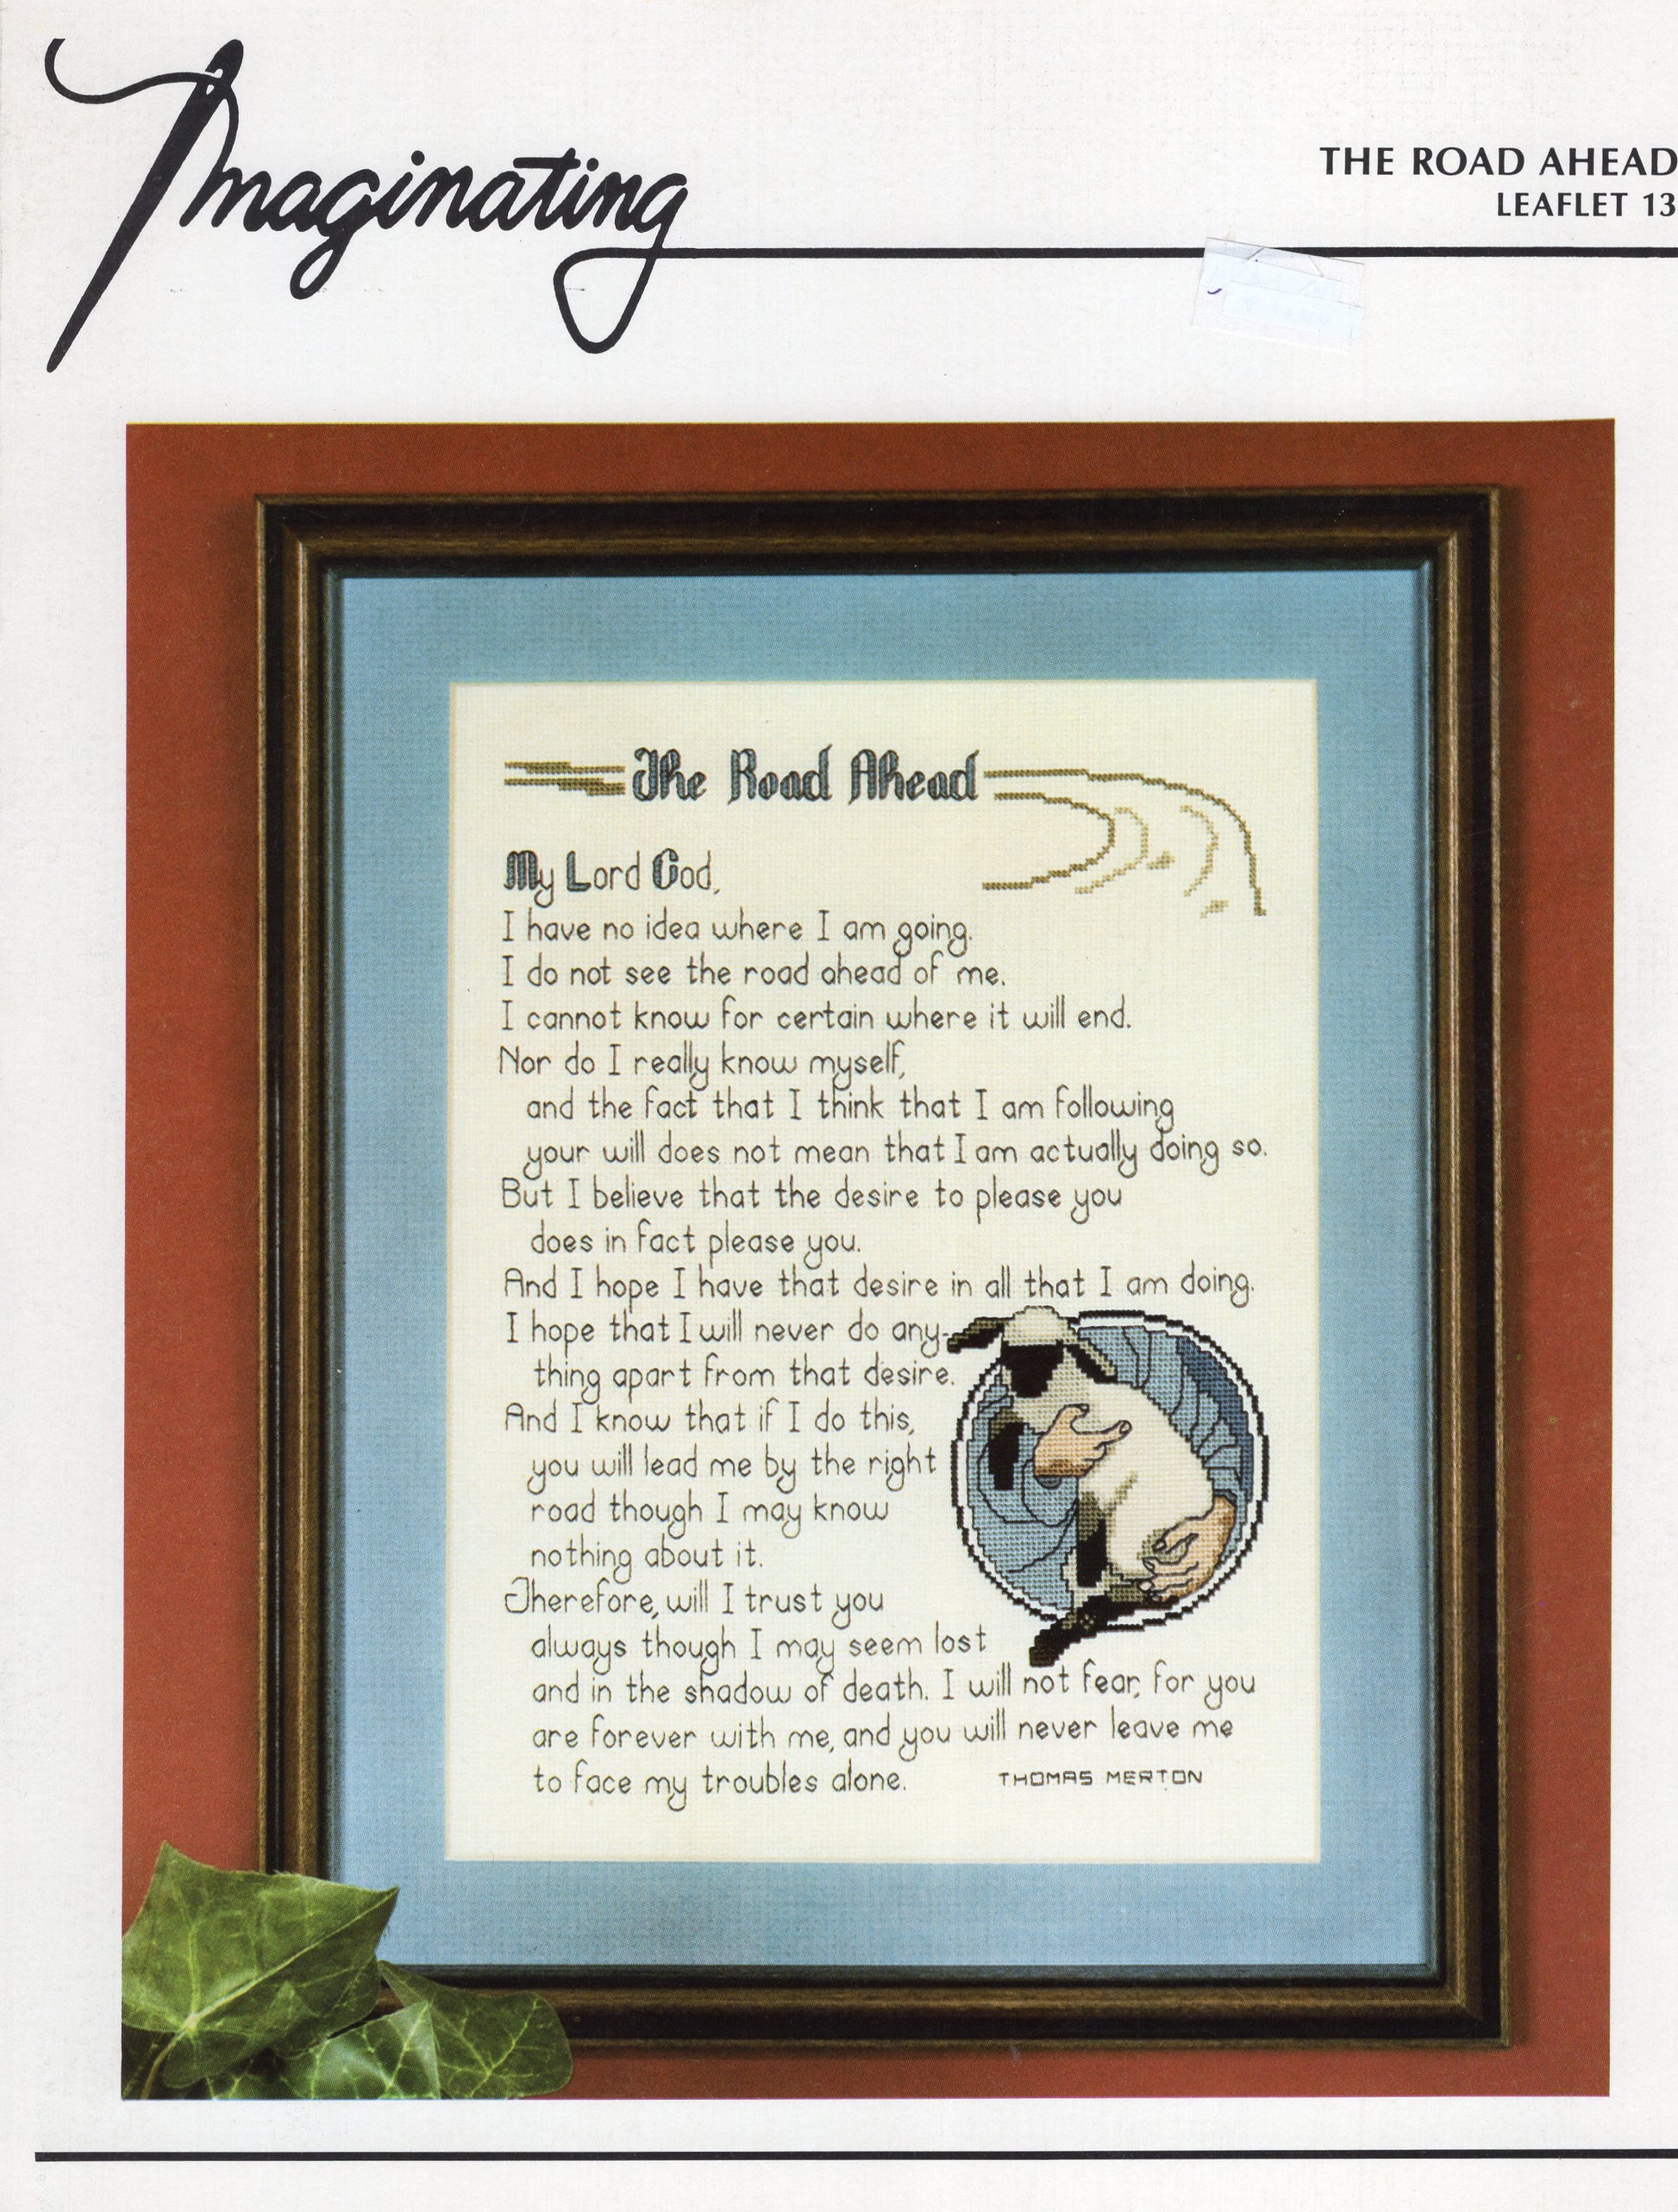 Imaginating
THE ROAD AHEAD
LEAFLET 13
The Road Ahead
My Lord God,
I have no idea where I am going.
I do not see the road ahead of me.
I cannot know for certain where it will end.
Nor do I really know myself,
and the fact that I think that I am following
your will does not mean that I am actually doing so.
But I believe that the desire to please you
does in fact please you.
And I hope I have that desire in all that I am doing.
I hope that I will never do any-
thing apart from that desire.
And I know that if I do this,
you will lead me by the right
road though I may know
nothing about it.
Therefore, will I trust you
always though I may seem lost
and in the shadow of death. I will not fear, for you
are forever with me, and you will never leave me
to face my troubles alone.
THOMAS MERTON